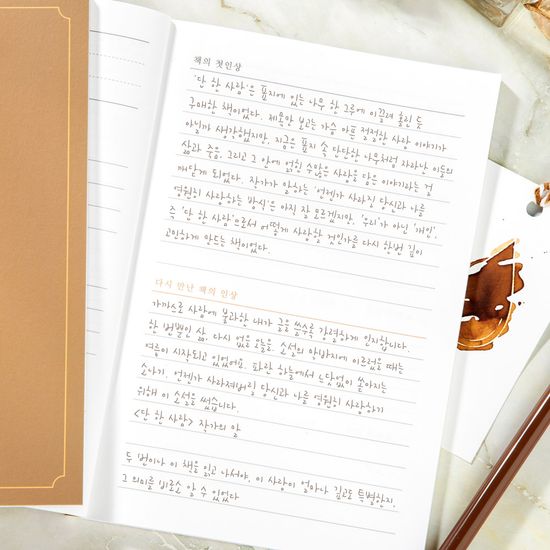 책의 첫인상
'단 한 사람'은 표지에 있는 나무 한 그루에 이끌려 홀린 듯
구매한 책이었다. 제목만 보고는 가슴 아픈 절절한 사랑 이야기가
아닐까 생각했지만, 지금은 표지 속 단단한 나무처럼 자라난 이들의
삶과 죽음, 그리고 그 안에 얽힌 수많은 사람을 담은 이야기라는 걸
깨닫게 되었다. 작가가 말하는 '언젠가 사라질 당신과 나를
영원히 사랑하는 방식'은 아직 잘 모르겠지만, '우리'가 아닌 '개인',
즉 '단 한 사람'으로서 어떻게 사랑할 것인가를 다시 한번 깊이
고민하게 만드는 책이었다.
다시 만난 책의 인상
가까스로 사람에 불과한 내가 글을 쓸수록 간결하게 인지합니다.
한 번뿐인 삶, 다시 없을 오늘을. 소설의 막바지에 이르렀을 때는
여름이 시작되고 있었어요. 파란 하늘에서 느닷없이 쏟아지는
소나기. 언젠가 사라져버릴 당신과 나를 영원히 사랑하기
위해 이 소설을 썼습니다.
<단 한 사람> 작가의 말
두 번이나 이 책을 읽고 나서야, 이 사랑이 얼마나 깊고도 특별한지,
그 의미를 비로소 알 수 있었다